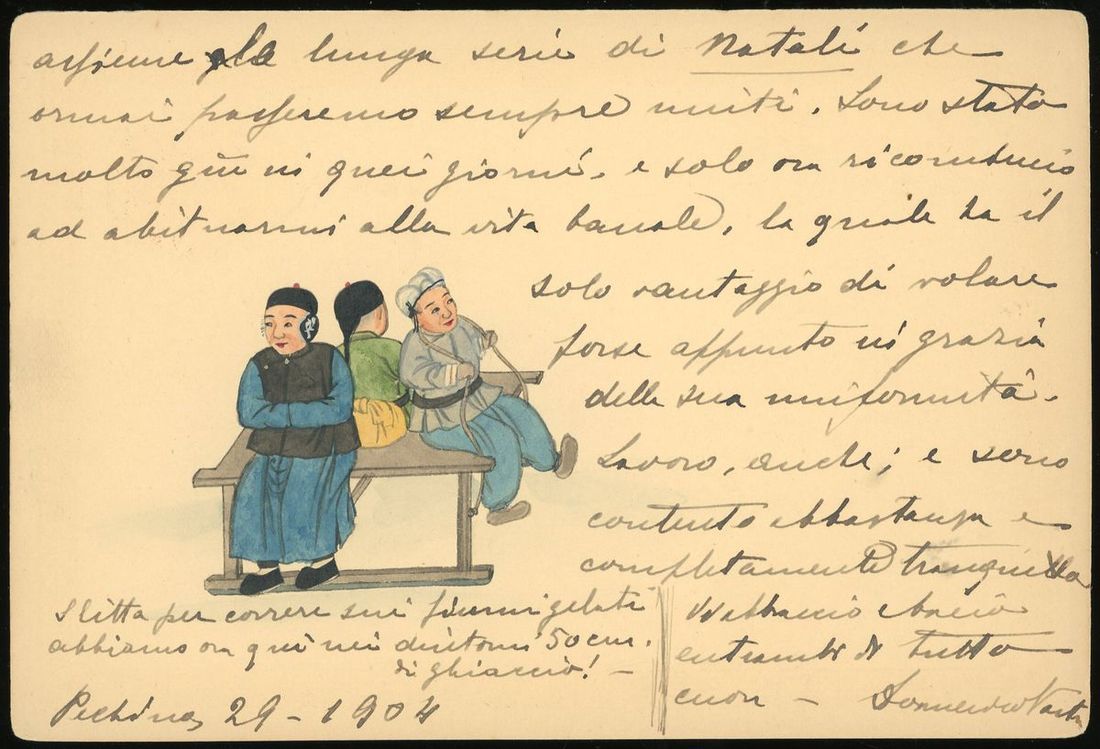 assieme alla lunga serie di Natali che
ormai passeremo sempre uniti. Sono stato
molto giù in quei giorni. e solo ora ricomincio
ad abituarmi alla vita banale, la quale ha il
solo vantaggio di volare
forse appunto in grazia
della sua uniformità.
Lavoro, anche; e sono
contento abbastanza e
completamente tranquillo
Vi abbraccio e bacio
entrambi di tutto
cuore –
Slitta per correre sui fiumi gelati
abbiamo ora quì nei dintorni 50 cm.
di ghiaccio! –
Pechino, 29 - 1904